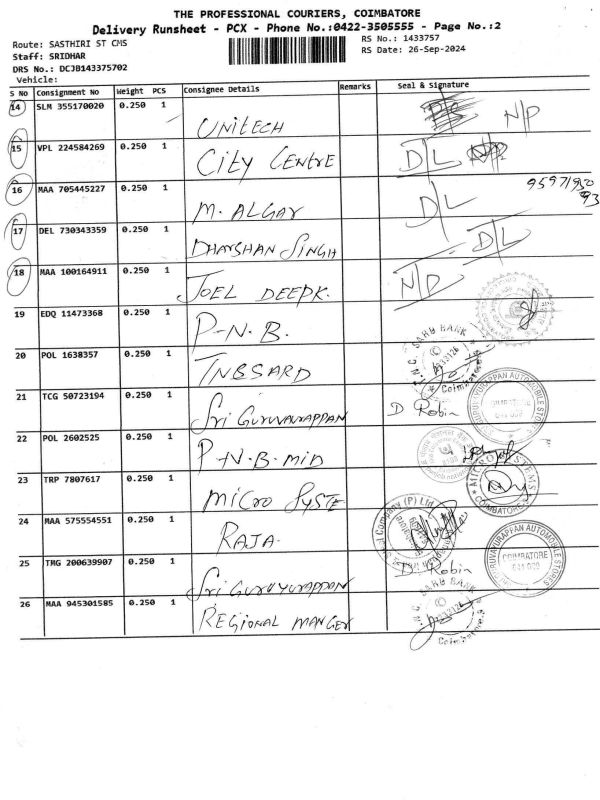 THE PROFESSIONAL COURIERS, COIMBATORE
Delivery Runsheet - PCX - Phone No.:0422-3505555 - Page No.:2
Route: SASTHIRI ST CMS
RS No.: 1433757
Staff: SRIDHAR
RS Date: 26-Sep-2024
DRS No.: DCJB143375702
Vehicle:
S No Consignment No Weight PCS Consignee Details Remarks Seal & Signature
14 SLM 355170020 0.250 1 UNITECH N/P
15 VPL 224584269 0.250 1 CITY CENTRE D/L
16 MAA 705445227 0.250 1 M. ALGAR D/L
17 DEL 730343359 0.250 1 DHARSHAN SINGH D/L
18 MAA 100164911 0.250 1 JOEL DEEPK. N/D
19 EDQ 11473368 0.250 1 P-N-B.
20 POL 1638357 0.250 1 TNBSARD
21 TCG 50723194 0.250 1 SRI GURUVAURAPPAN D Robin
22 POL 2602525 0.250 1 P-N-B-MID
23 TRP 7807617 0.250 1 MICRO SYSTE
24 MAA 575554551 0.250 1 RAJA
25 TMG 200639907 0.250 1 SRI GURUYURAPPAN D Robin
26 MAA 945301585 0.250 1 REGIONAL MANGER